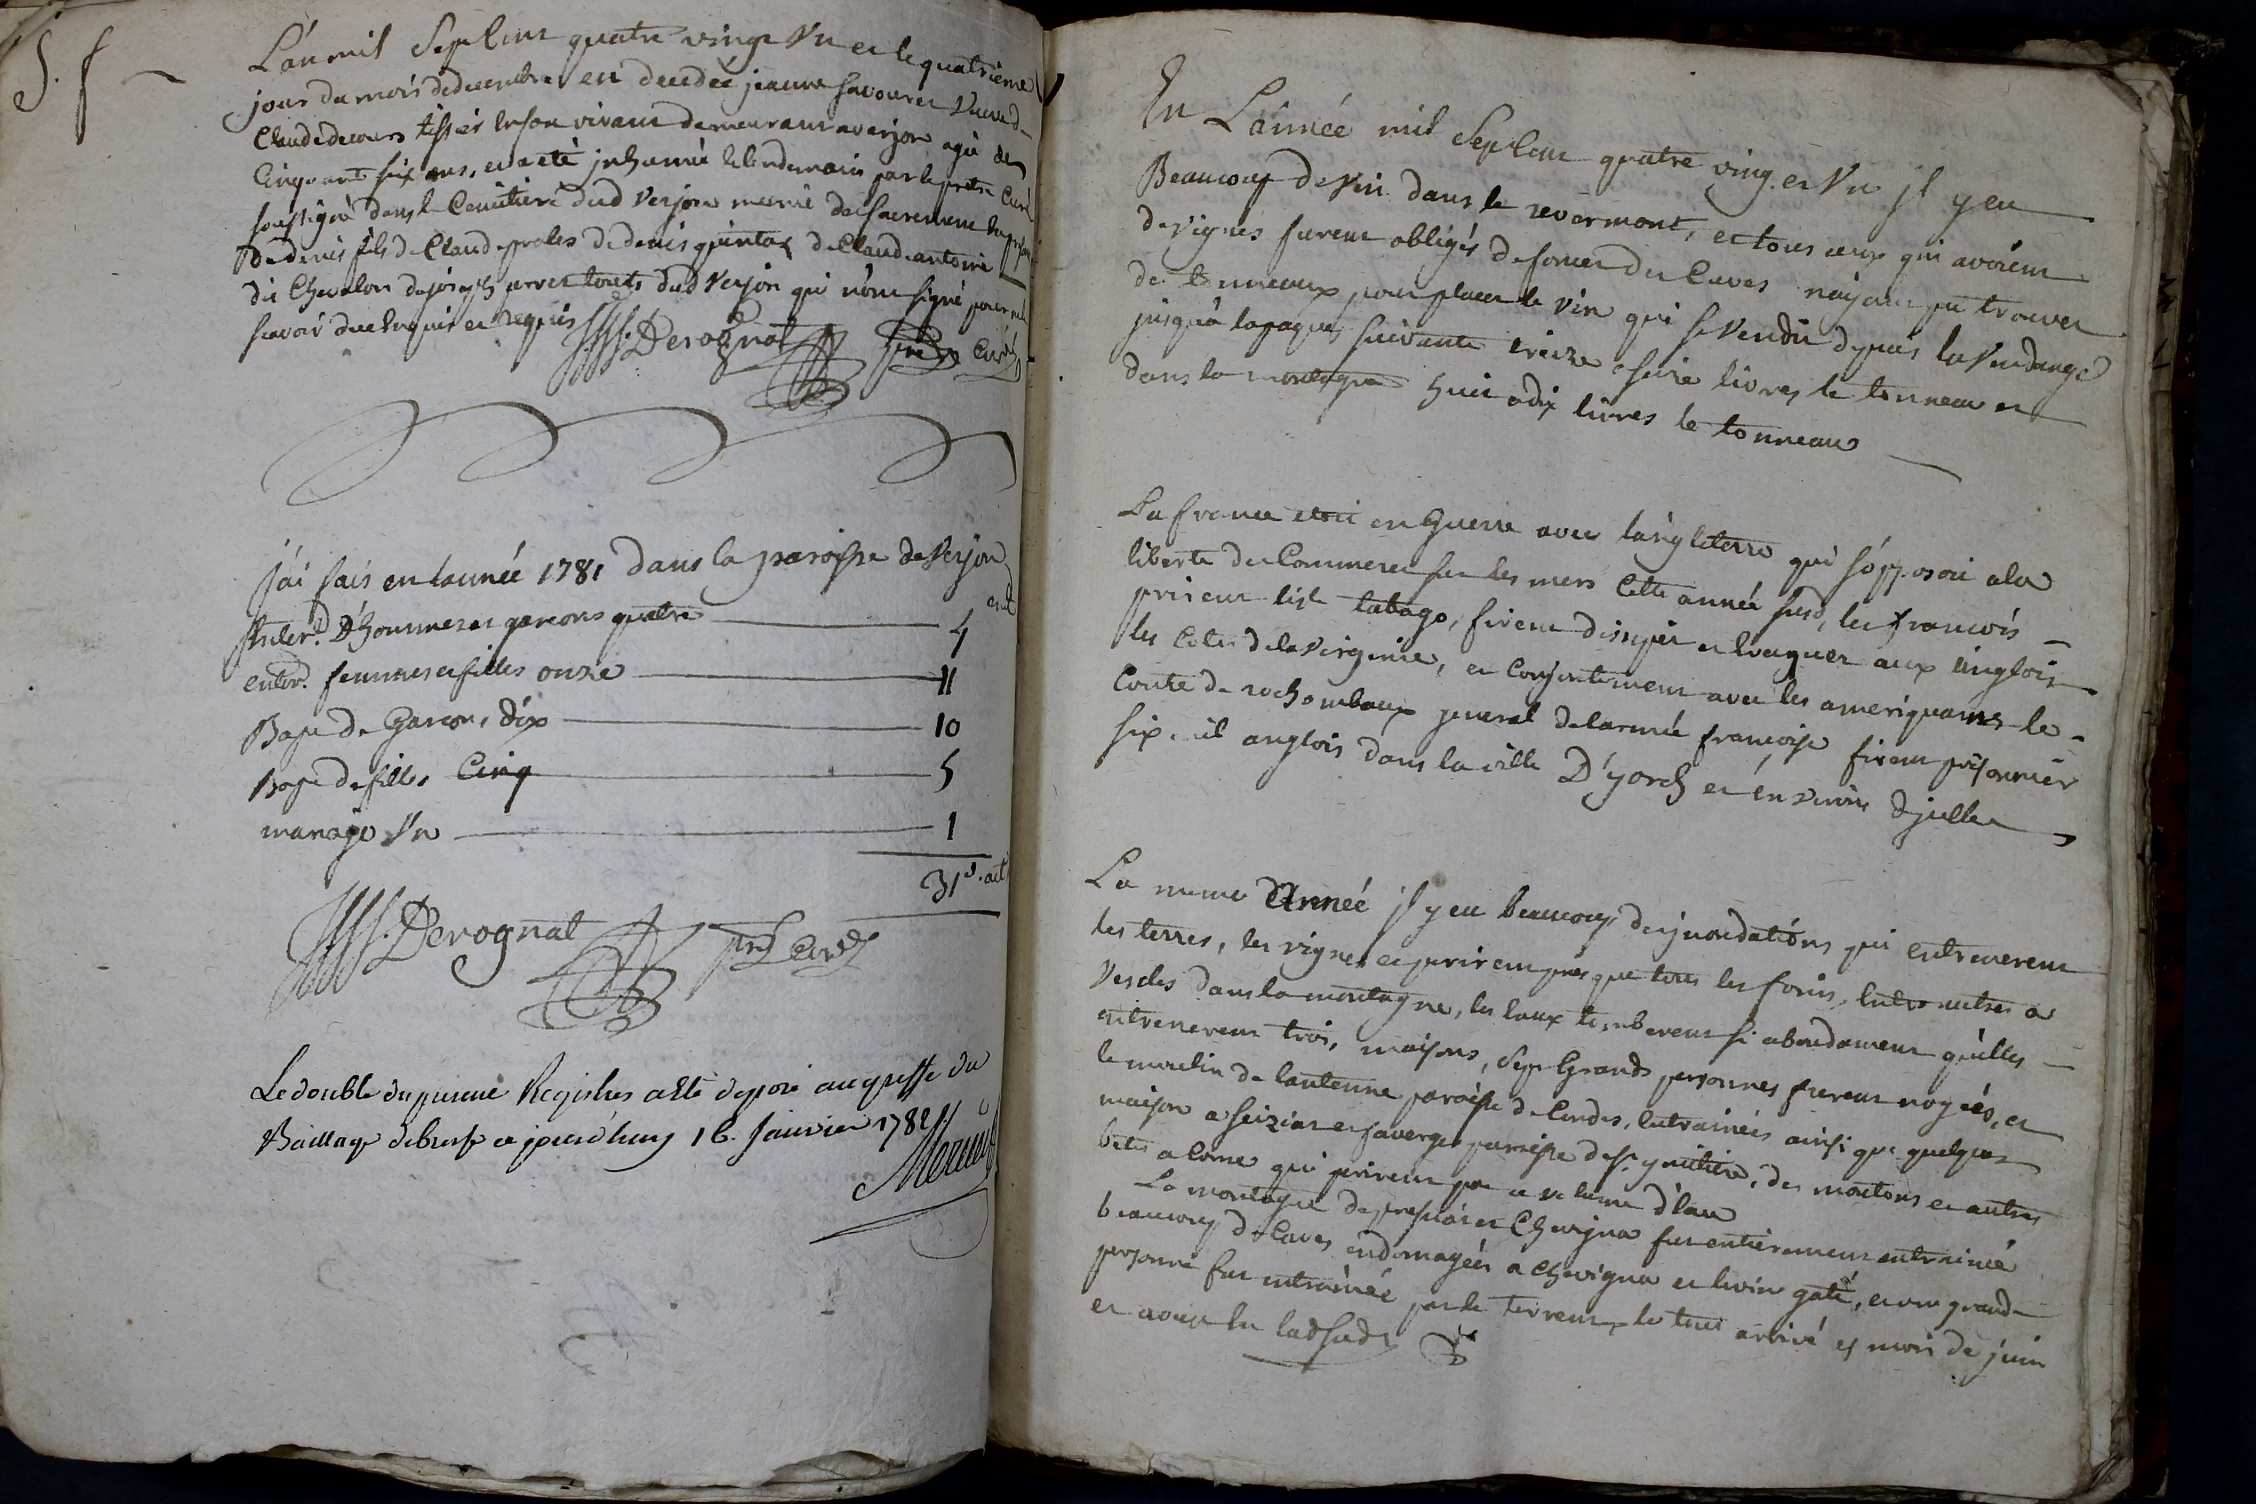 S. f
L'an mil Sept Cent quatre vingt Un et le quatrieme
jour du mois de decembre est decedée jeanne savouret Veuve d
Claude decours tissier en son vivant demeurant a verjon agée de
Cinquante six ans, et a eté jnhumée le lendemain par le pretre Curé
soussigné dans le Cemitiere dud Verjon munie des sacremens En presence
de denis fils de Claude proles de denis quinta de Claude antoine
dit Chevalon de joseph perret touts dud Verjon qui n'ont signé pour ne
scavoir de ce Enquis et requis
Derognat ptre Curé
j'ai fais en lannée 1781 dans la paroisse de Verjon
Enter.t D'hommes et garcons quatre 4
enter.t femmes et filles onze 11
Bap. de Garcons dix 10
Bap. de filles Cinq 5
mariage Un 1
31 s. act
Derognat ptre Curé
Le double du present Registres a Eté deposé au greffe du
Baillage de bresse ce jourd'huy 16 Janvier 1782
En L'année mil Sept Cent quatre ving et Un jl y eu
Beaucoup de Vin dans le revermont, et tous ceux qui avoient
de Vignes furent obligés de foncer des Cuves n'ayant pu trouver
de tonneaux pour placer le Vin qui se Vendit depuis la Vendange
jusqu'a la paque suivante treize a seize livres le tonneau et
dans la montagne huit a dix livres le tonneau
La france etoit en Guerre avec l'angleterre qui s'opposoit a la
liberté du Commerce sur les mers Cette année susd. les francois
prirent l'isle tabago, firent dissiper et Evaquer aux anglois
les Cotes de la virginie, et Conjointement avec les ameriquains le
Conte de rochombaux general de larmée françoise firent prisonnier
six mil anglois dans la ville D'yorck et en environ
La meme Année jl y eu beaucoup des jnondations qui entrenerent
les terres, les vignes et perirent presque tous les foins, Entre autres a
Vescles dans la montagne, les Eaux tomberent si abondament qu'elles
entrenerent trois maisons, Sept Grands personnes furent noyées, et
le moulin de lantenne paroisse de Condes, Entrainées ainsi que quelques
maison a seizia et faverge paroisse de st. ymitiere, des moutons et autres
betes a Corne qui perirent par ce volume d'eau
La montagne de pressia et Chevigna fut entierement entrainée
beaucoup de Caves endomagées a Chevigna et le vin gaté, et une grande
personne fut entrainée par le torrent, le tout arrivé es mois de juin
et aoust de lad susd.